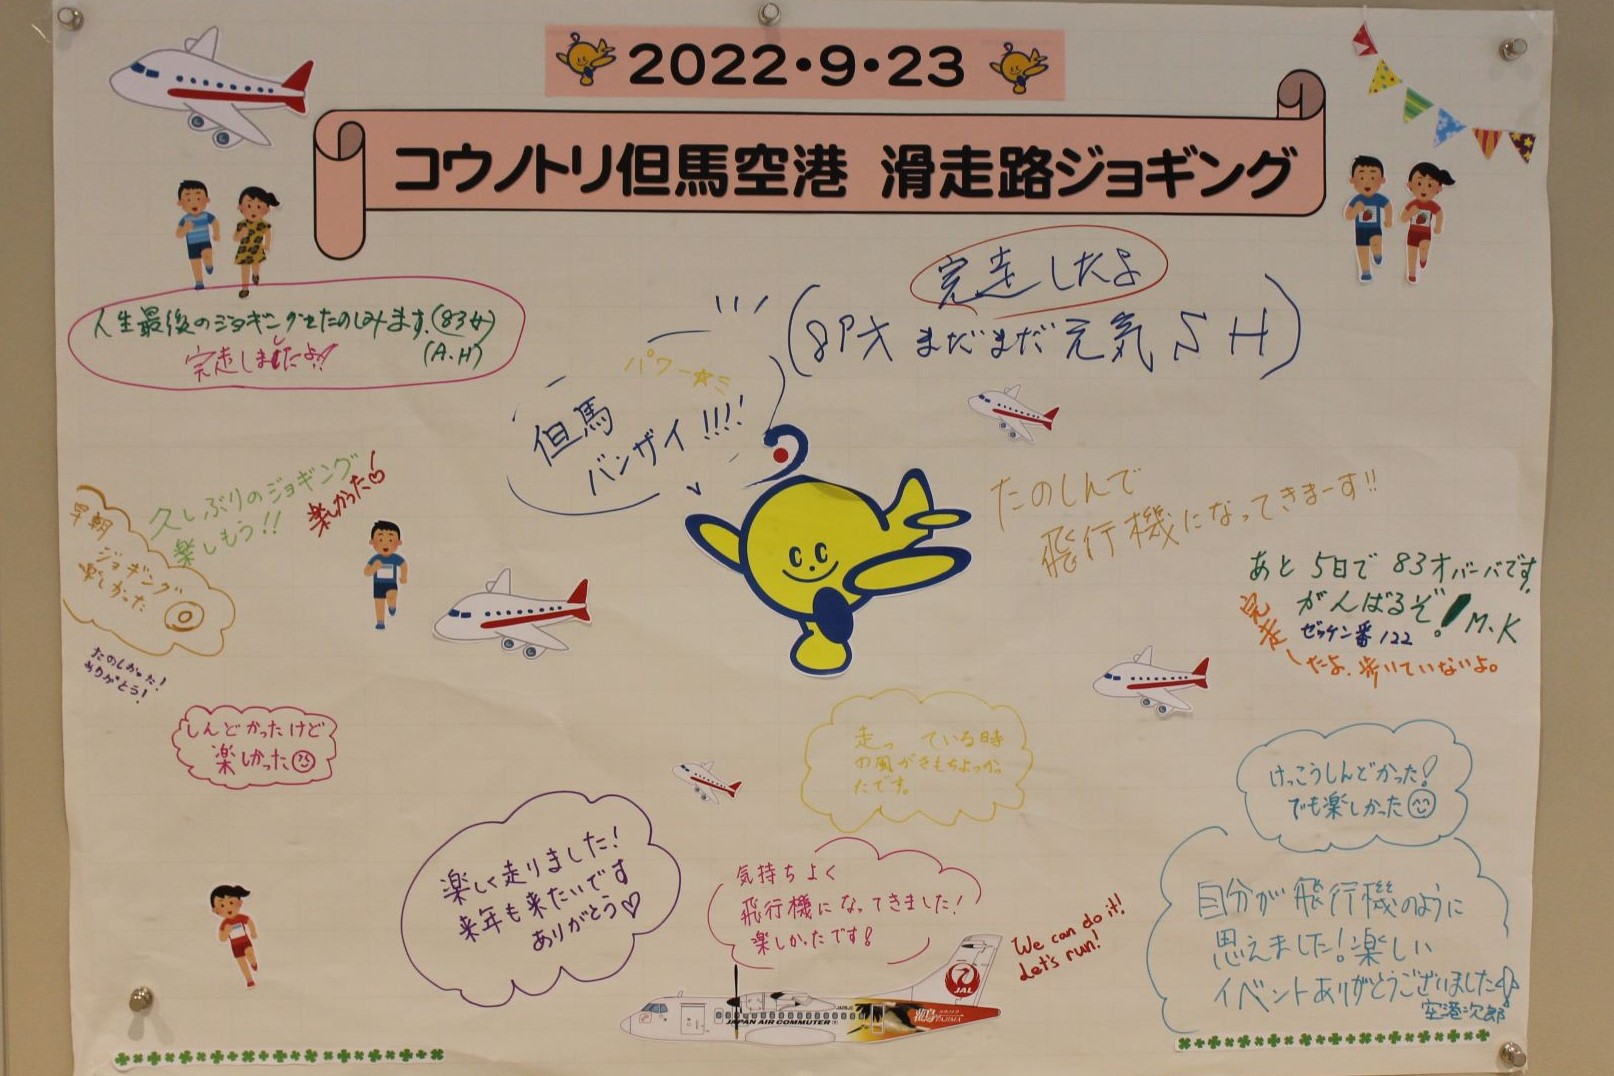 2022・9・23
コウノトリ但馬空港 滑走路ジョギング
人生最後のジョギングをたのしみます。(83女)
(A.H)
完走しましたよ!!
完走したよ
まだまだ元気 S H
パワー☆
但馬
バンザイ!!!!
久しぶりのジョギング
楽しもう!!
楽しかった♡
早朝
ジョギング
楽しかった
たのしかった!
ありがとう!
たのしんで
飛行機になってきまーす!!
あと5日で83才バーバです。
がんばるぞ! M.K
ゼッケン番122
完走したよ、歩いていないよ。
しんどかったけど
楽しかった
走っている時
の風がきもちよかっ
たです。
けっこうしんどかった!
でも楽しかった
楽しく走りました!
来年も来たいです
ありがとう♡
気持ちよく
飛行機になってきました!
楽しかったです!
We can do it!
Let's run!
自分が飛行機のように
思えました!楽しい
イベントありがとうございました
空港次郎
JAL
JAPAN AIR COMMUTER